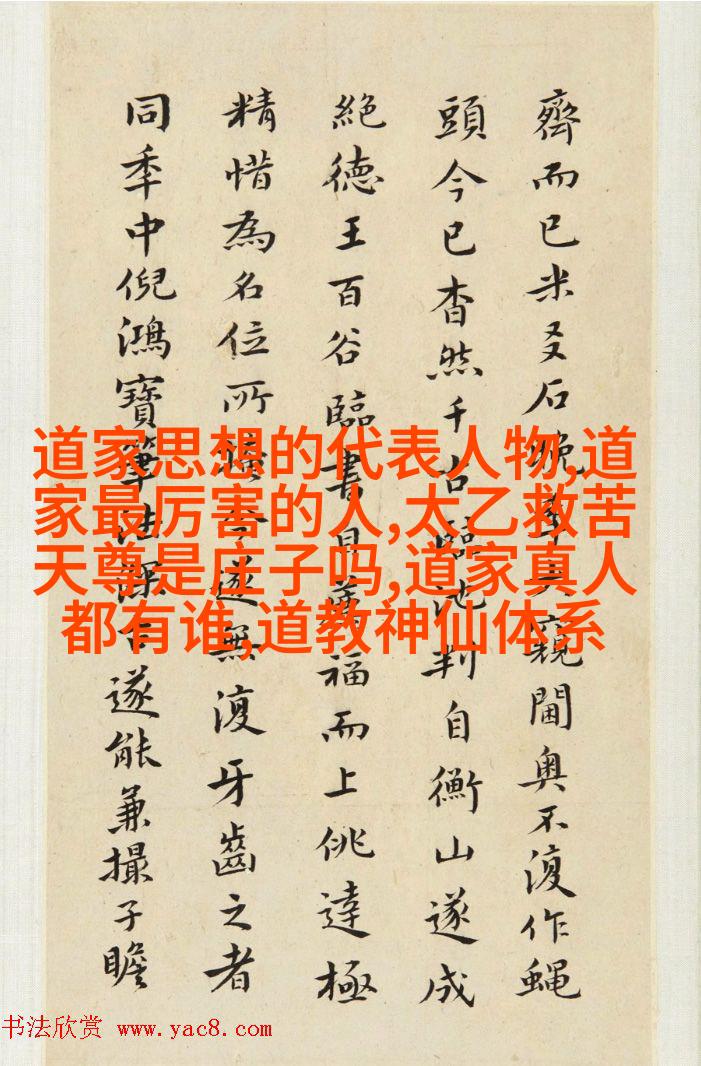 齊而已米友石晚窺閫奧不復作蝇
頭今已杳然千古臨池判自衡山遂成
絕德王百谷臨書福而上佻達極
精惜為名位所遂無復牙齒之者
同秊中倪鴻寶筆法深古遂能兼撮子瞻
道家思想的代表人物,道
家最厉害的人,太乙救苦
天尊是庄子吗,道家真人
都有谁,道教神仙体系
书法欣赏 www.yac8.com